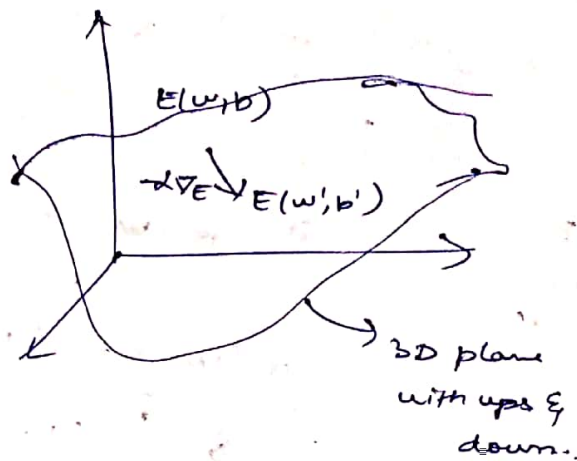 E(w,b)
-α∇E E(w',b')
3D plane
with ups &
down.